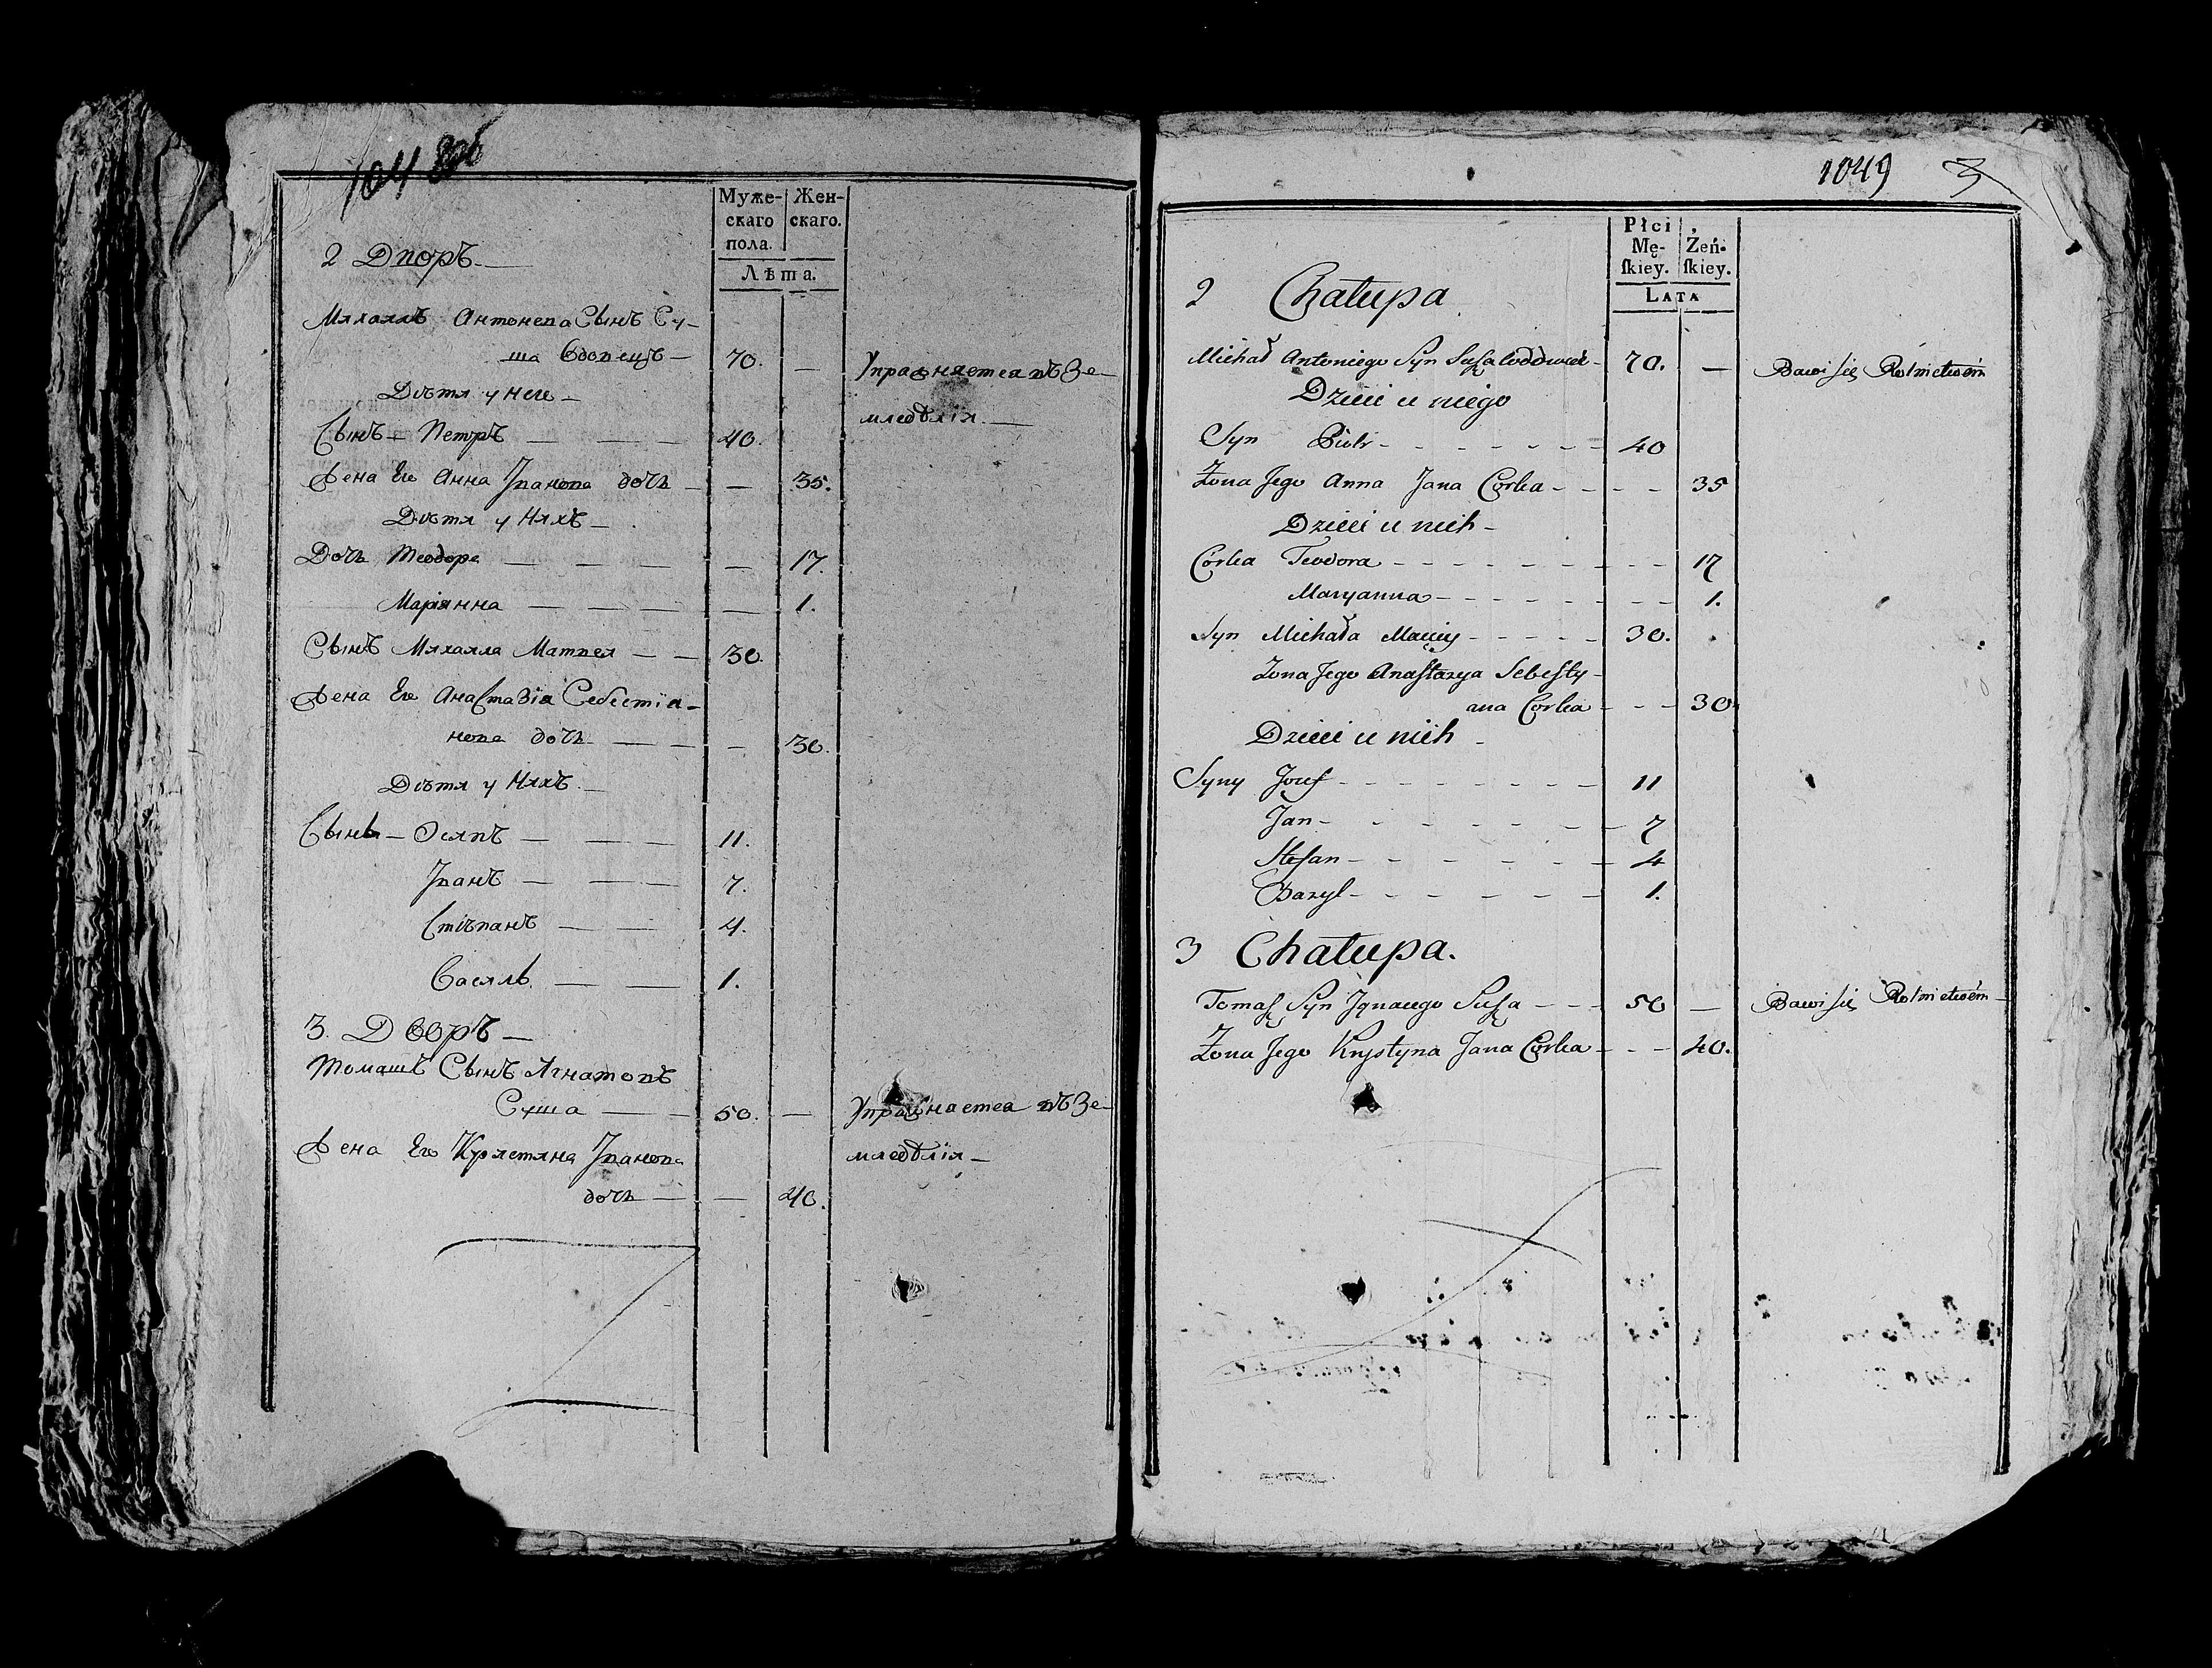 104
Муже- Жен-
скаго скаго.
пола.
Лѣта.
2 Дворъ —
Михаилъ Антонова Сынъ Су-
ша Вдовецъ — 70. — Упражняется въ Зе-
Дѣти у него — мледѣлія. —
Сынъ — Петръ — — — 40.
Жена Его Анна Іванова дочь — — 35.
Дѣти у Нихъ —
Дочь Теодора — — — — 17.
Маріянна — — — — 1.
Сынъ Михаила Матвея — — 30.
Жена Его АнаСтаЗія Себестія-
нова дочь — — — 30.
Дѣти у Нихъ. —
Сынъ — Осипъ — — — 11.
Іванъ — — — 7.
Стѣпанъ — — 4.
Василь. — — 1.
3. Дворъ —
Томашъ Сынъ Игнатовъ
Суша — — 50. — Упражняется въ Зе-
Жена Его Кристина Іванова мледѣлія —
дочь — — 40.
1049 3
Płci Żeń-
Mę- ſkiey.
ſkiey.
LATA
2 Chałupa
Michał Antoniego Syn Susza wddowiec - 70. — Bawi się Rolnictwem
Dzieci u niego
Syn Piotr - - - - - - - 40
Żona Jego Anna Jana Corka - - - - 35
Dzieci u nich -
Córka Teodora - - - - - - - - - 17
Maryanna - - - - - - - - 1.
Syn Michała Maciey - - - - - 30.
Żona Jego Anastazya Sebesty-
ana Corka - - - 30.
Dzieci u nich -
Syny Jozef - - - - - - - - 11
Jan - - - - - - - 7
Stefan - - - - - - - 4
Bazyl - - - - - - - 1.
3 Chałupa.
Tomasz Syn Ignacego Susza - - - 50 — Bawi się Rolnictwem
Żona Jego Krystyna Jana Corka - - - 40.